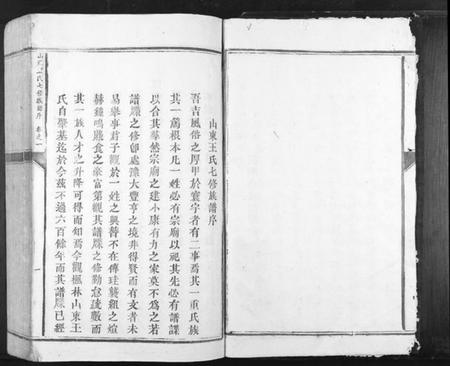 山東王氏七修族譜序
吾吉風俗之厚甲於寰宇者有二事焉其一重氏族
其一篤根本凡一姓必有宗廟以祀其先必有譜牒
以合其羣然宗廟之建小康有力之家莫不為之若
譜牒之修卽處豫大豐亨之境非得賢而有文者未
易舉事君子觀於一姓之興替不在傳珪襲組之煊
赫鐘鳴鼎食之豪富第觀其譜牒之修勤怠疏數而
其一族人才之升降可得而知焉今觀楓林山東王
氏自肇基迄於今茲不過六百餘年而其譜牒已經
山東王氏七修族譜序 卷之一